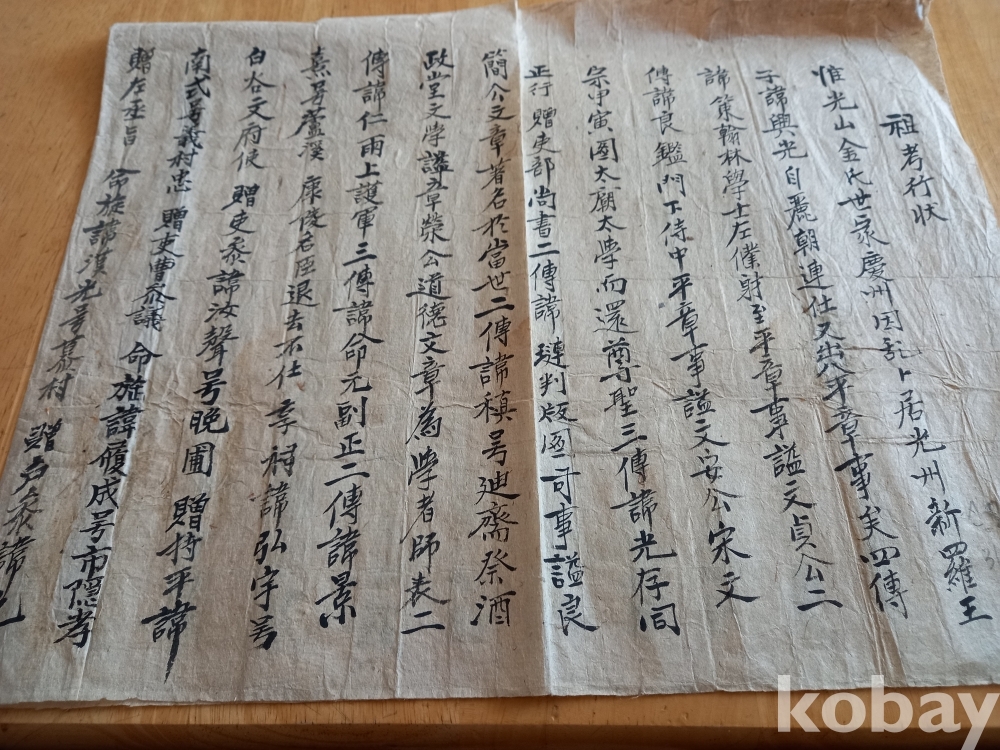 祖考行状
惟光山金氏世家慶州因乱卜居光州新羅王
子諱興光自麗朝連仕又出八平章事矣四傳
諱策翰林學士左僕射至平章事謚文貞公二
傳諱良鑑門下侍中平章事謚文安公宋文
宗甲寅圖太廟太學而還尊聖三傳諱光存同
正行贈吏部尚書二傳諱璉判版啚司事謚良
簡公文章著名於當世二傳諱稹号迪齋祭酒
政堂文學謚章榮公道德文章為學者師表二
傳諱仁雨上護軍三傳諱命元副正二傳諱景
熹号蘆溪康陵名臣退去不仕享祠諱弘宇号
白谷文府使贈吏參諱汝聲号晚圃贈持平諱
南式号義村忠贈吏曹參議命旌諱履成号市隱孝
贈左丞旨命旌諱漢光号慕村贈戶參諱
kobay